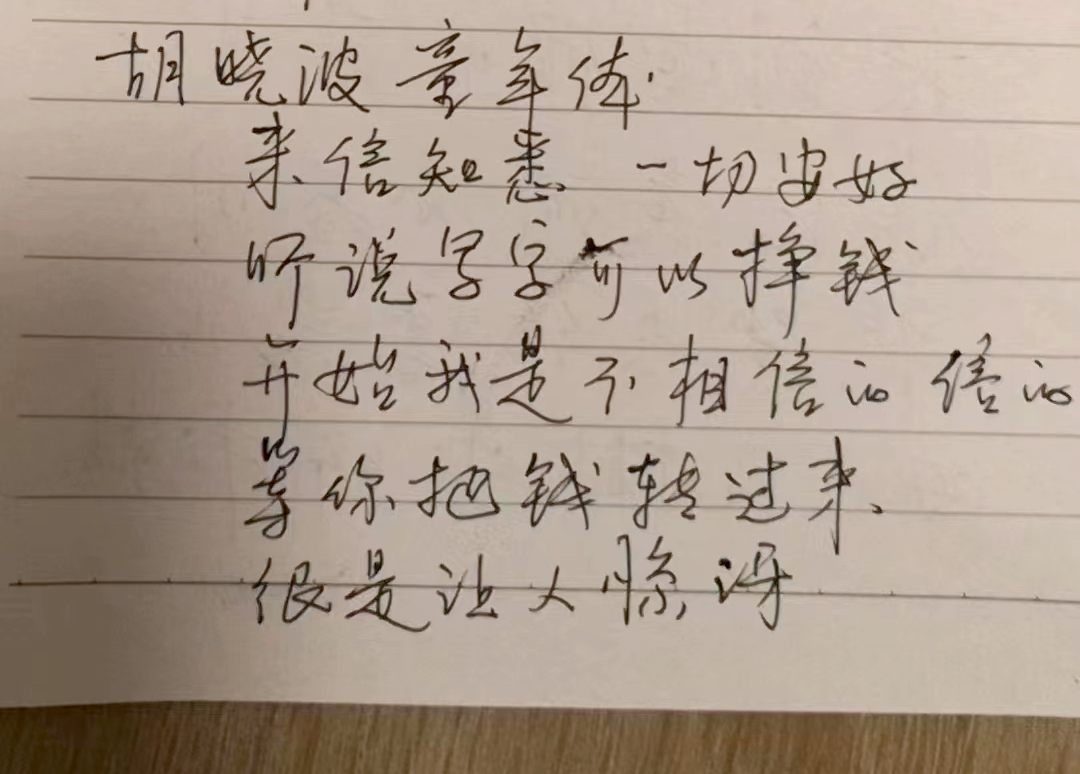 胡晓波童年体.
来信知悉 一切安好
所说写字可以挣钱
开始我是不相信的 信的
等你把钱转过来、
很是让人惊讶